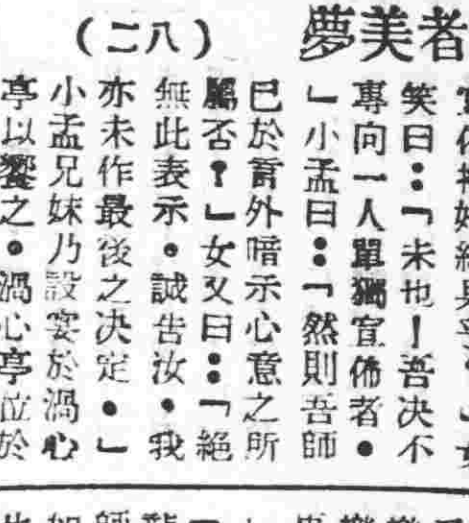 者美夢
（八二）
笑曰：「未也！吾决不
專向一人單獨宣佈者。
」小孟曰：「然則吾師
已於言外暗示心意之所
屬否？」女父曰：「絕
無此表示。誠告汝。我
亦未作最後之决定。」
小孟兄妹乃設宴於渦心
亭以饗之。渦心亭位於